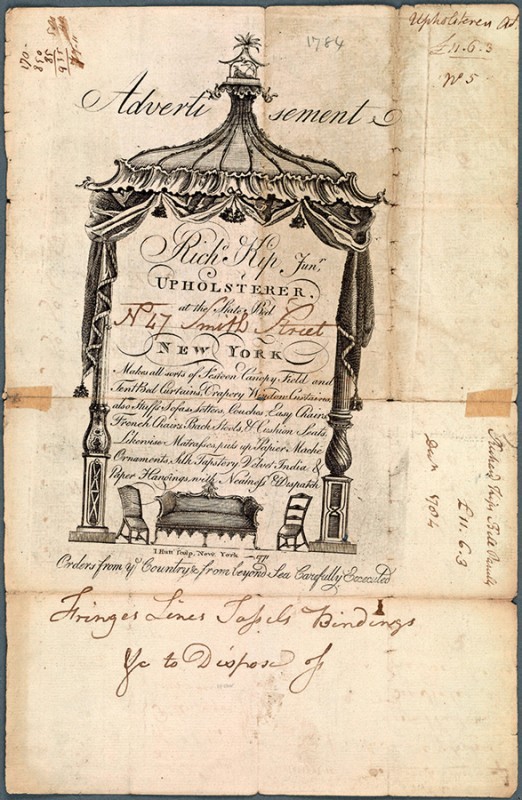 1784
Upholsterer
£11.6.3
No 5
Advertisement
Richd. Kip Junr.
UPHOLSTERER.
at the White Bed
No 47 Smith Street
NEW YORK
Makes all sorts of Festoon Canopy Field and
Tent Bed Curtains, Drapery Window Curtains
also Stuffs Sofas Settees, Couches Easy Chairs
French Chairs Back Stools & Cushion Seats
Likewise Matrasses, puts up Papier Machie
Ornaments, Silk Tapestry Velvet India &
Paper Hangings, with Neatness & Dispatch
I. Hutt Sculp. New York
Orders from ye Country & from beyond Sea Carefully Executed
Fringes Lines Tassels Bindings
&c to Dispose of
£11.6.3
1784